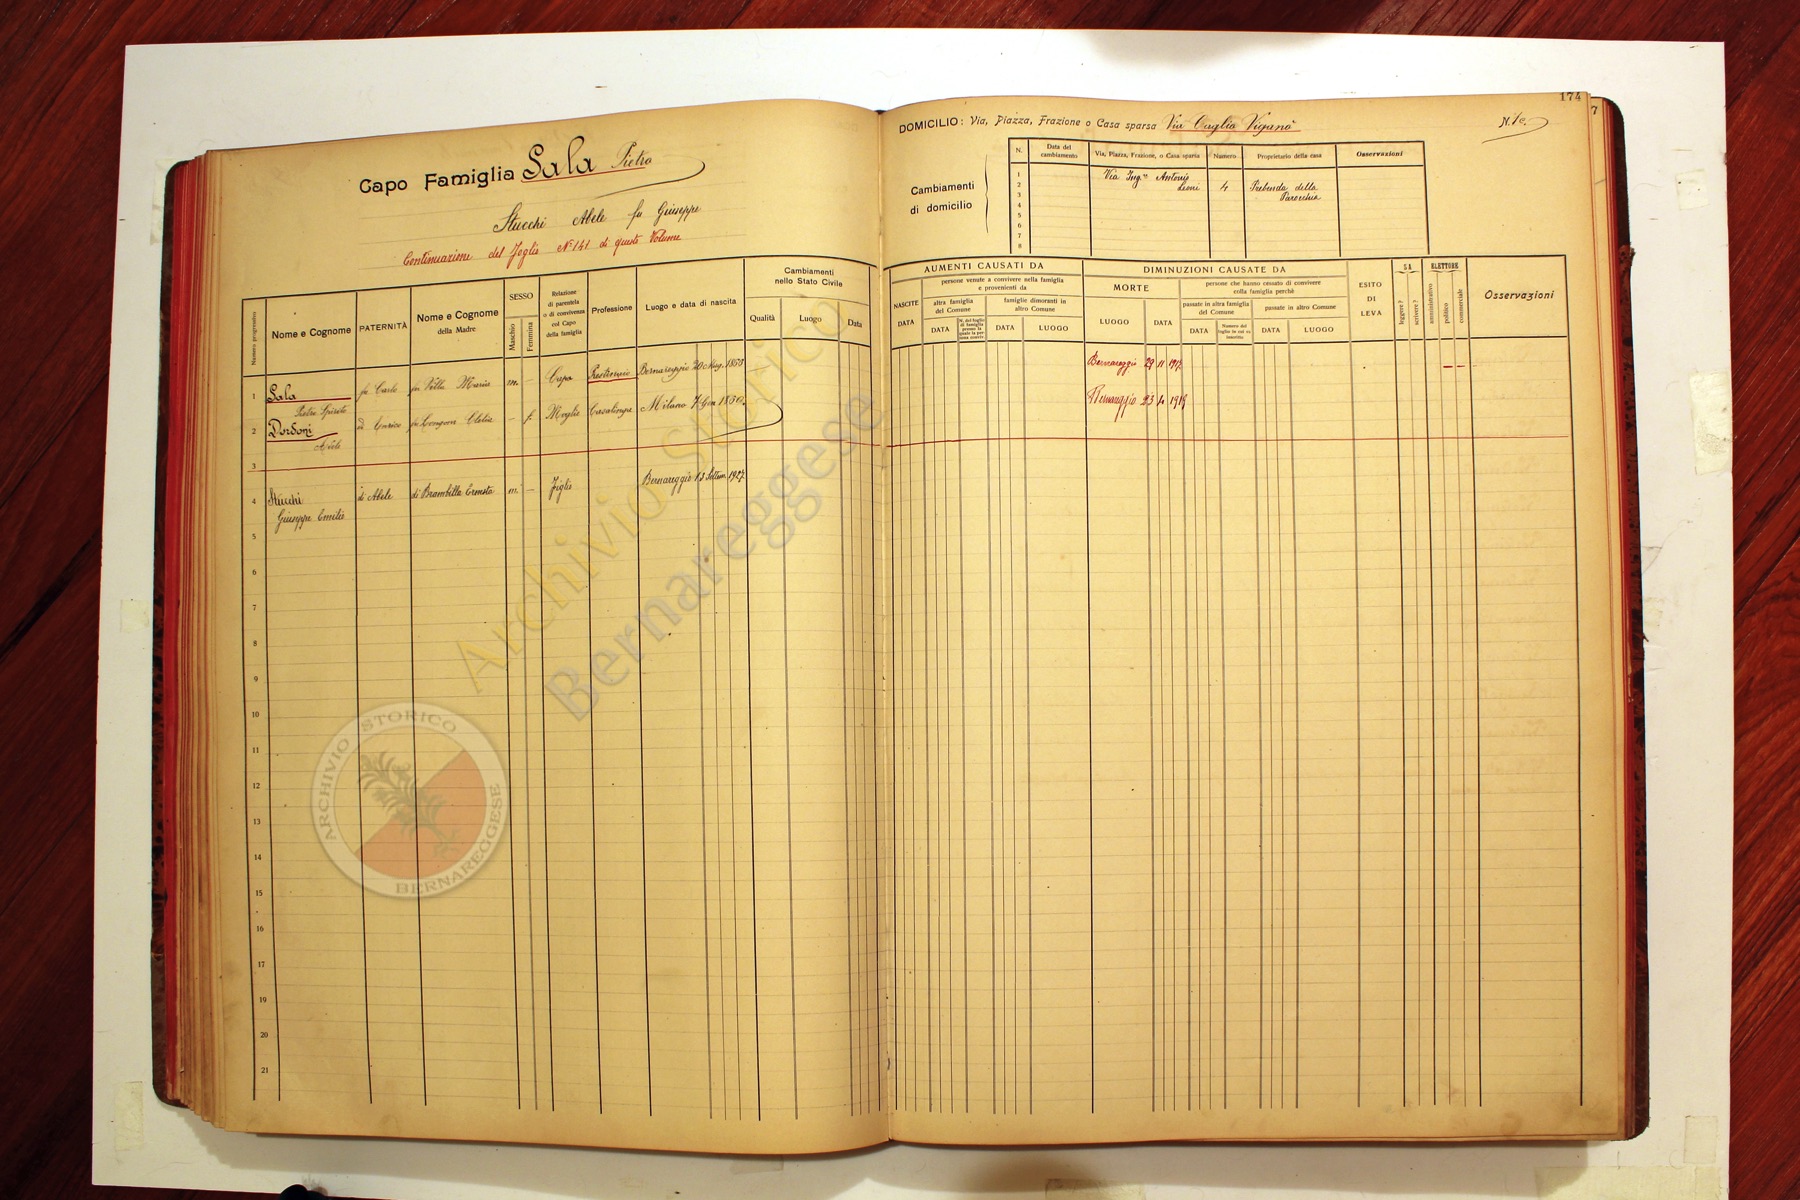 174
7
Capo Famiglia Sala Pietro
Stucchi Abele fu Giuseppe
Continuazione del foglio N° 141 di questo Volume
DOMICILIO: Via, Piazza, Frazione o Casa sparsa Via Viganò
Cambiamenti
di domicilio
N.
Data del
cambiamento
Via, Piazza, Frazione, o Casa sparsa
Numero
Proprietario della casa
Osservazioni
1
2
3
4
5
6
7
8
Via Ing. Antonio
Leoni
4
Prebenda della
Parocchia
Numero progressivo
Nome e Cognome
PATERNITÀ
Nome e Cognome
della Madre
SESSO
Maschio
Femmina
Relazione
di parentela
o di convivenza
col Capo
della famiglia
Professione
Luogo e data di nascita
Cambiamenti
nello Stato Civile
Qualità
Luogo
Data
AUMENTI CAUSATI DA
NASCITE
DATA
persone venute a convivere nella famiglia
e provenienti da
altra famiglia
del Comune
DATA
famiglie dimoranti in
altro Comune
DATA
LUOGO
DIMINUZIONI CAUSATE DA
MORTE
LUOGO
DATA
persone che hanno cessato di convivere
colla famiglia perchè
passate in altra famiglia
del Comune
DATA
Numero del
foglio in cui su
inscritto
passate in altro Comune
DATA
LUOGO
ESITO
DI
LEVA
SA
leggere?
scrivere?
ELETTORE
amministrativo
politico
commerciale
Osservazioni
1
Sala
Pietro Spirito
fu Carlo
fu Villa Maria
m. –
Capo
Prestinaio
Bernareggio 20 Mag. 1853
Bernareggio 29 11 1917
2
Dordoni
Adele
di Enrico
fu Longoni Clelia
– f.
Moglie
Casalinga
Milano 7 Gen 1830
Bernareggio 23 4 1919
3
4
Stucchi
Giuseppe Emilio
di Abele
di Brambilla Ernesta
m. –
Figlio
Bernareggio 13 Settem. 1927
5
6
7
8
9
10
11
12
13
14
15
16
17
18
19
20
21
Archivio Storico
Bernareggese
ARCHIVIO STORICO
BERNAREGGESE